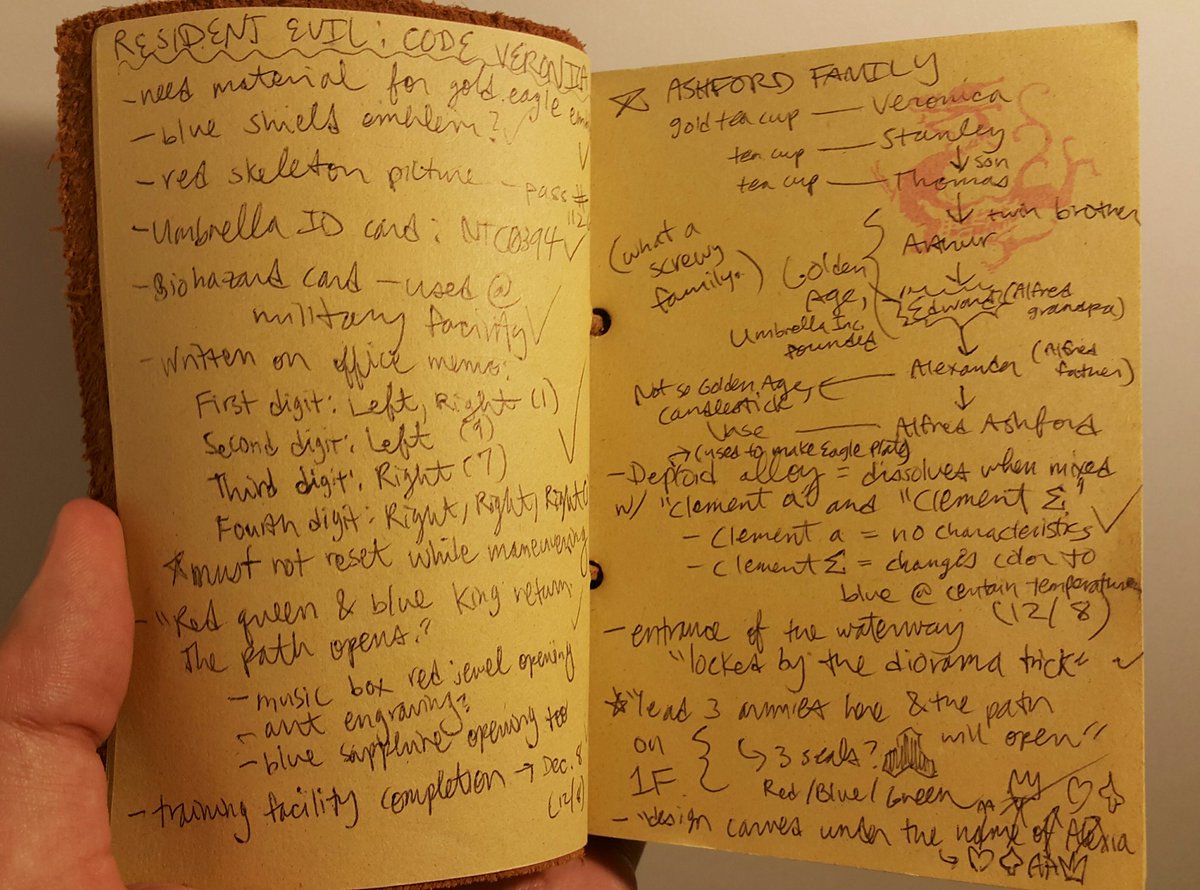 RESIDENT EVIL: CODE VERONICA
-need material for gold eagle em
-blue shield emblem? ✓
-red skeleton picture - pass #
-Umbrella ID card: NTC0394 ✓
-Biohazard card - used @
military facility ✓
-written on office memo:
First digit: Left, Right (1)
Second digit: Left (9)
Third digit: Right (7)
Fourth digit: Right, Right, Right
☆must not reset while maneuvering
-"Red queen & blue king return.
The path opens.?
- music box red jewel opening
- ant engraving?
- blue sapphire opening too
- training facility completion → Dec. 8
(12/8)
☆ ASHFORD FAMILY
gold tea cup — Veronica
tea cup — Stanley
↓ son
tea cup — Thomas
↓ twin brother
Arthur
(what a screwy family.)
Golden Age, Umbrella Inc. founded
Edward (Alfred grandpa)
Alexander (Alfred father)
Not so Golden Age, candlestick
Vase — Alfred Ashford
→ (used to make Eagle Plate)
-Deploid alloy = dissolves when mixed
w/ "Clement a" and "Clement Σ" ✓
- Clement a = no characteristics
- Clement Σ = changes color to
blue @ certain temperature
(12/8)
- entrance of the waterway
"locked by the diorama trick"
☆"lead 3 armies here & the path
will open"
on 1F { ↳ 3 seals?
Red/Blue/Green
- "design carved under the name of Alexia